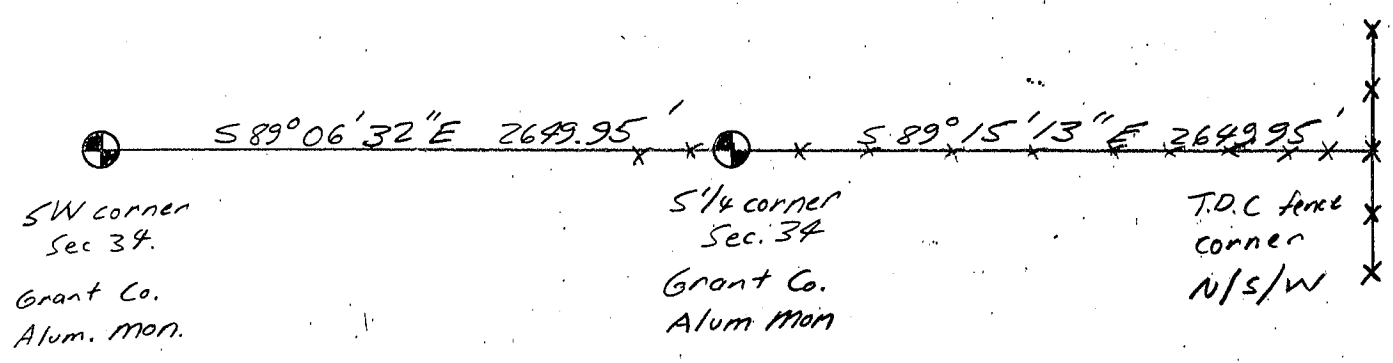 S 89° 06' 32" E 2649.95'
S 89° 15' 13" E 2649.95'
SW corner
Sec 34.
Grant Co.
Alum. Mon.
S 1/4 corner
Sec. 34
Grant Co.
Alum Mon
T.D.C fence
corner
N/S/W